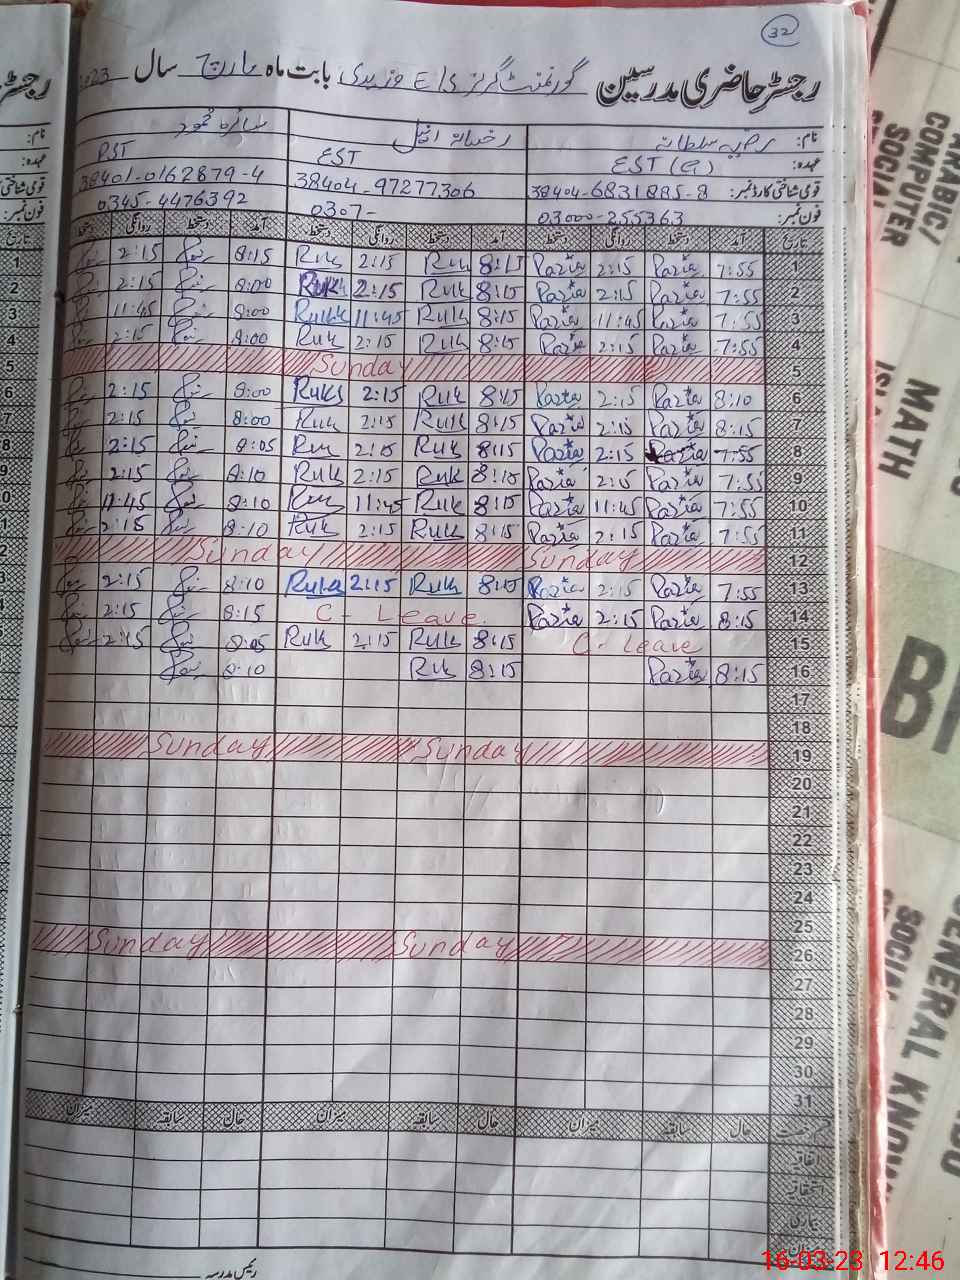 32
رجسٹر حاضری مدرسین گورنمنٹ گرلز E/S بابت ماہ مارچ سال 2023
نام: رضیہ سلطانہ رخسانہ
عہدہ: EST (G) EST PST
قومی شناختی کارڈ نمبر: 38404-6831885-8 38404-97277306 38401-0162879-4
فون نمبر: 03000-255363 0307- 0345-4476392
تاریخ آمد دستخط روانگی دستخط آمد دستخط روانگی دستخط آمد دستخط روانگی دستخط
1 7:55 Razia 2:15 Razia 8:15 Ruk 2:15 Ruk 8:15 2:15
2 7:55 Razia 2:15 Razia 8:15 Ruk 2:15 Rukk 8:00 2:15
3 7:55 Razia 11:45 Razia 8:15 Ruk 11:45 Rukk 8:00 11:45
4 7:55 Razia 2:15 Razia 8:15 Ruk 2:15 Ruk 8:00 2:15
5 Sunday
6 8:10 Razia 2:15 Razia 8:15 Ruk 2:15 Ruks 8:00 2:15
7 8:15 Razia 2:15 Razia 8:15 Ruk 2:15 Ruk 8:00 2:15
8 7:55 Razia 2:15 Razia 8:15 Ruk 2:15 Ruk 8:05 2:15
9 7:55 Razia 2:15 Razia 8:15 Ruk 2:15 Ruk 8:10 2:15
10 7:55 Razia 11:45 Razia 8:15 Ruk 11:45 Ruk 8:10 11:45
11 7:55 Razia 2:15 Razia 8:15 Ruk 2:15 Ruk 8:10 2:15
12 Sunday Sunday
13 7:55 Razia 2:15 Razia 8:15 Ruk 2:15 Ruka 8:10 2:15
14 8:15 Razia 2:15 Razia C- Leave 8:15 2:15
15 C- Leave 8:15 Ruk 2:15 Ruk 8:05 2:15
16 8:15 Razia 8:15 Ruk 8:10
17
18
19 Sunday Sunday
20
21
22
23
24
25
26 Sunday Sunday
27
28
29
30
31
حال سابقہ میزان حال سابقہ میزان حال سابقہ میزان
اتفاقیہ
استحقاقیہ
بیماری
میزان
رئیس مدرسہ
ARABIC/
COMPUTER
SOCIAL
MATH
BI
GENERAL KNOW
SOCIAL
16-03-23 12:46